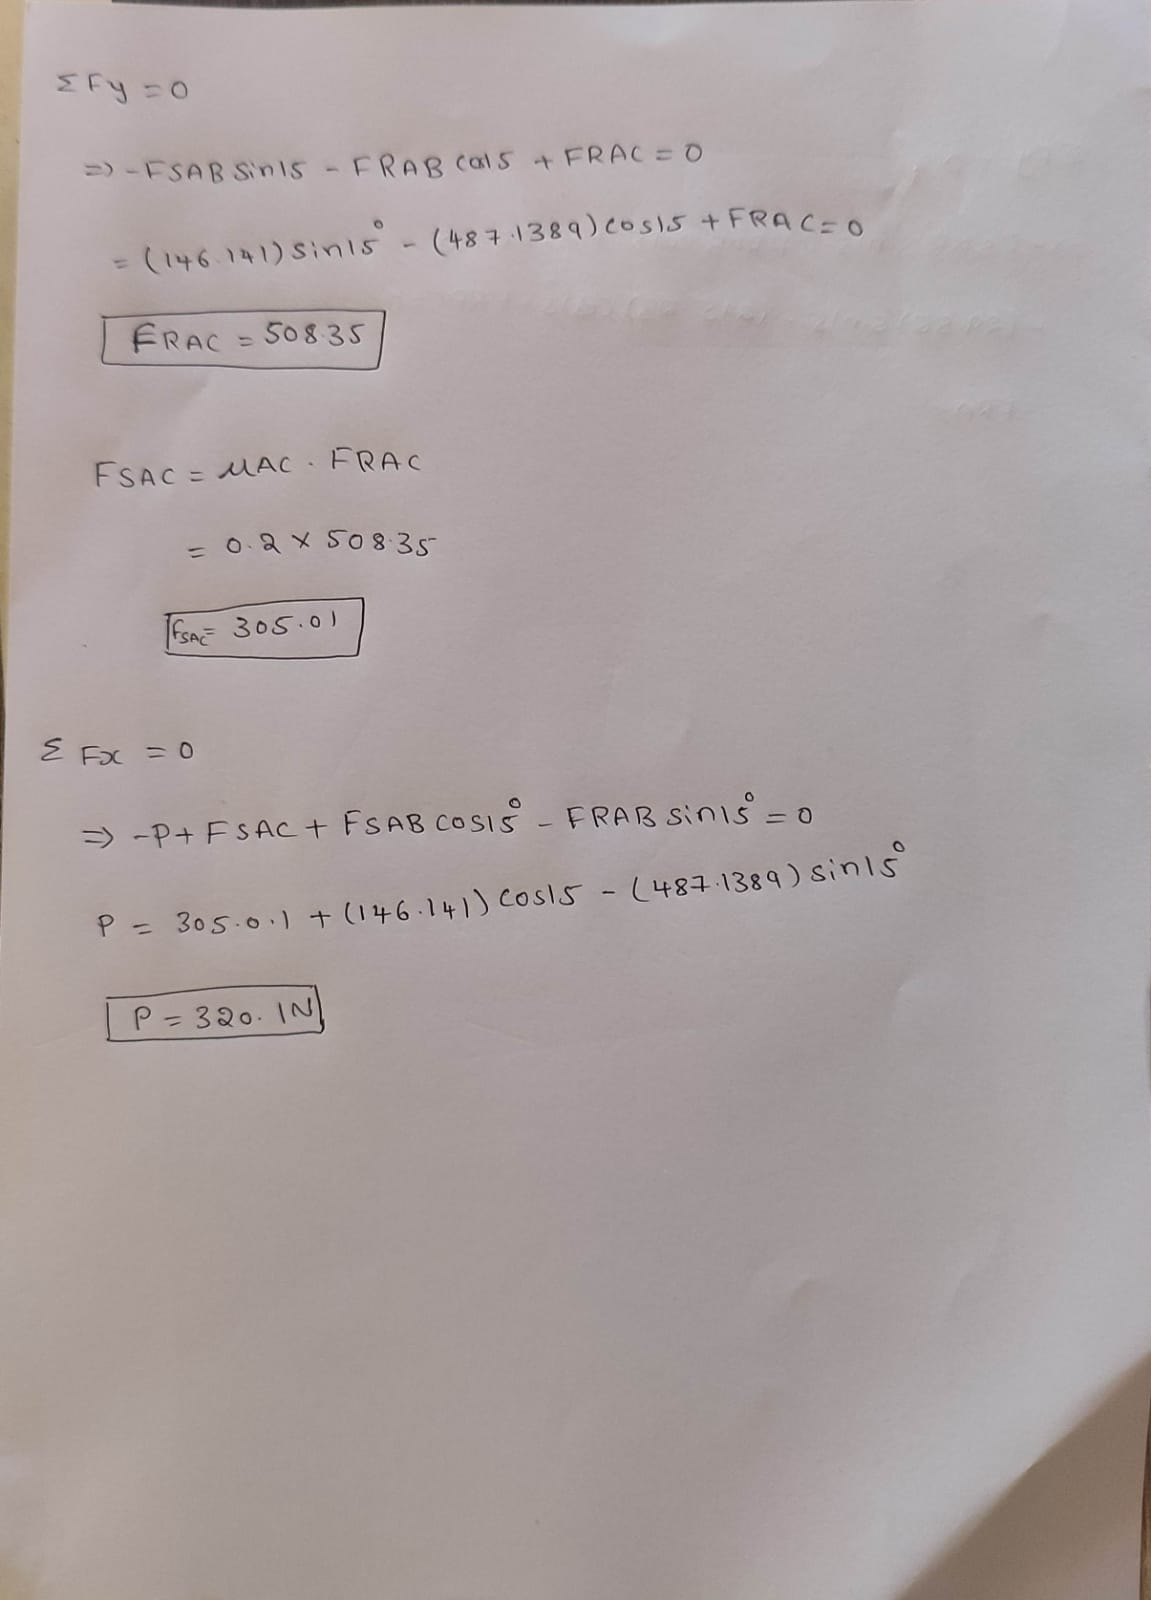 Σ Fy = 0
=> -FSAB Sin15 - FRAB Cos15 + FRAC = 0
= (146.141) Sin15° - (487.1389) cos15 + FRAC = 0
FRAC = 508.35
FSAC = MAC . FRAC
= 0.2 × 508.35
FSAC = 305.01
Σ Fx = 0
=> -P + FSAC + FSAB COS15° - FRAB Sin15° = 0
P = 305.0.1 + (146.141) Cos15 - (487.1389) sin15°
P = 320.1N